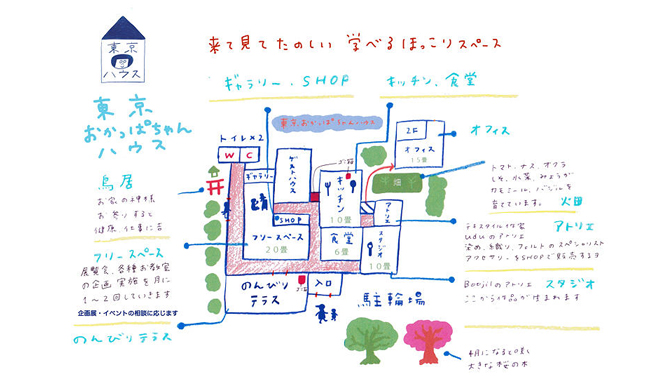 東京
ハウス
来て見てたのしい 学べるほっこりスペース
ギャラリー、SHOP
キッチン、食堂
東京
おかっぱちゃん
ハウス
東京おかっぱちゃんハウス
トイレ×2
W C
ギャラリー
ゲストハウス
SHOP
フリースペース
20畳
キッチン
10畳
食堂
6畳
アトリエ
スタジオ
10畳
2F
オフィス
15畳
畑
のんびり
テラス
入口
駐輪場
鳥居
お家の神様
お参りすると
健康、仕事に吉
フリースペース
展覧会、各種お教室
の企画、実施を月に
1〜2回していきます
企画展・イベントの相談に応じます
のんびりテラス
オフィス
トマト、ナス、オクラ
しそ、水菜、みょうが
カモミール、バジルを
育てています。
火田
アトリエ
テキスタイル作家
uduのアトリエ
染め、織り、フェルトのスペシャリスト
アクセサリーをSHOPで販売するヨ
Bojiのアトリエ スタジオ
ここから作品が生まれます
4月になると咲く
大きな桜の木